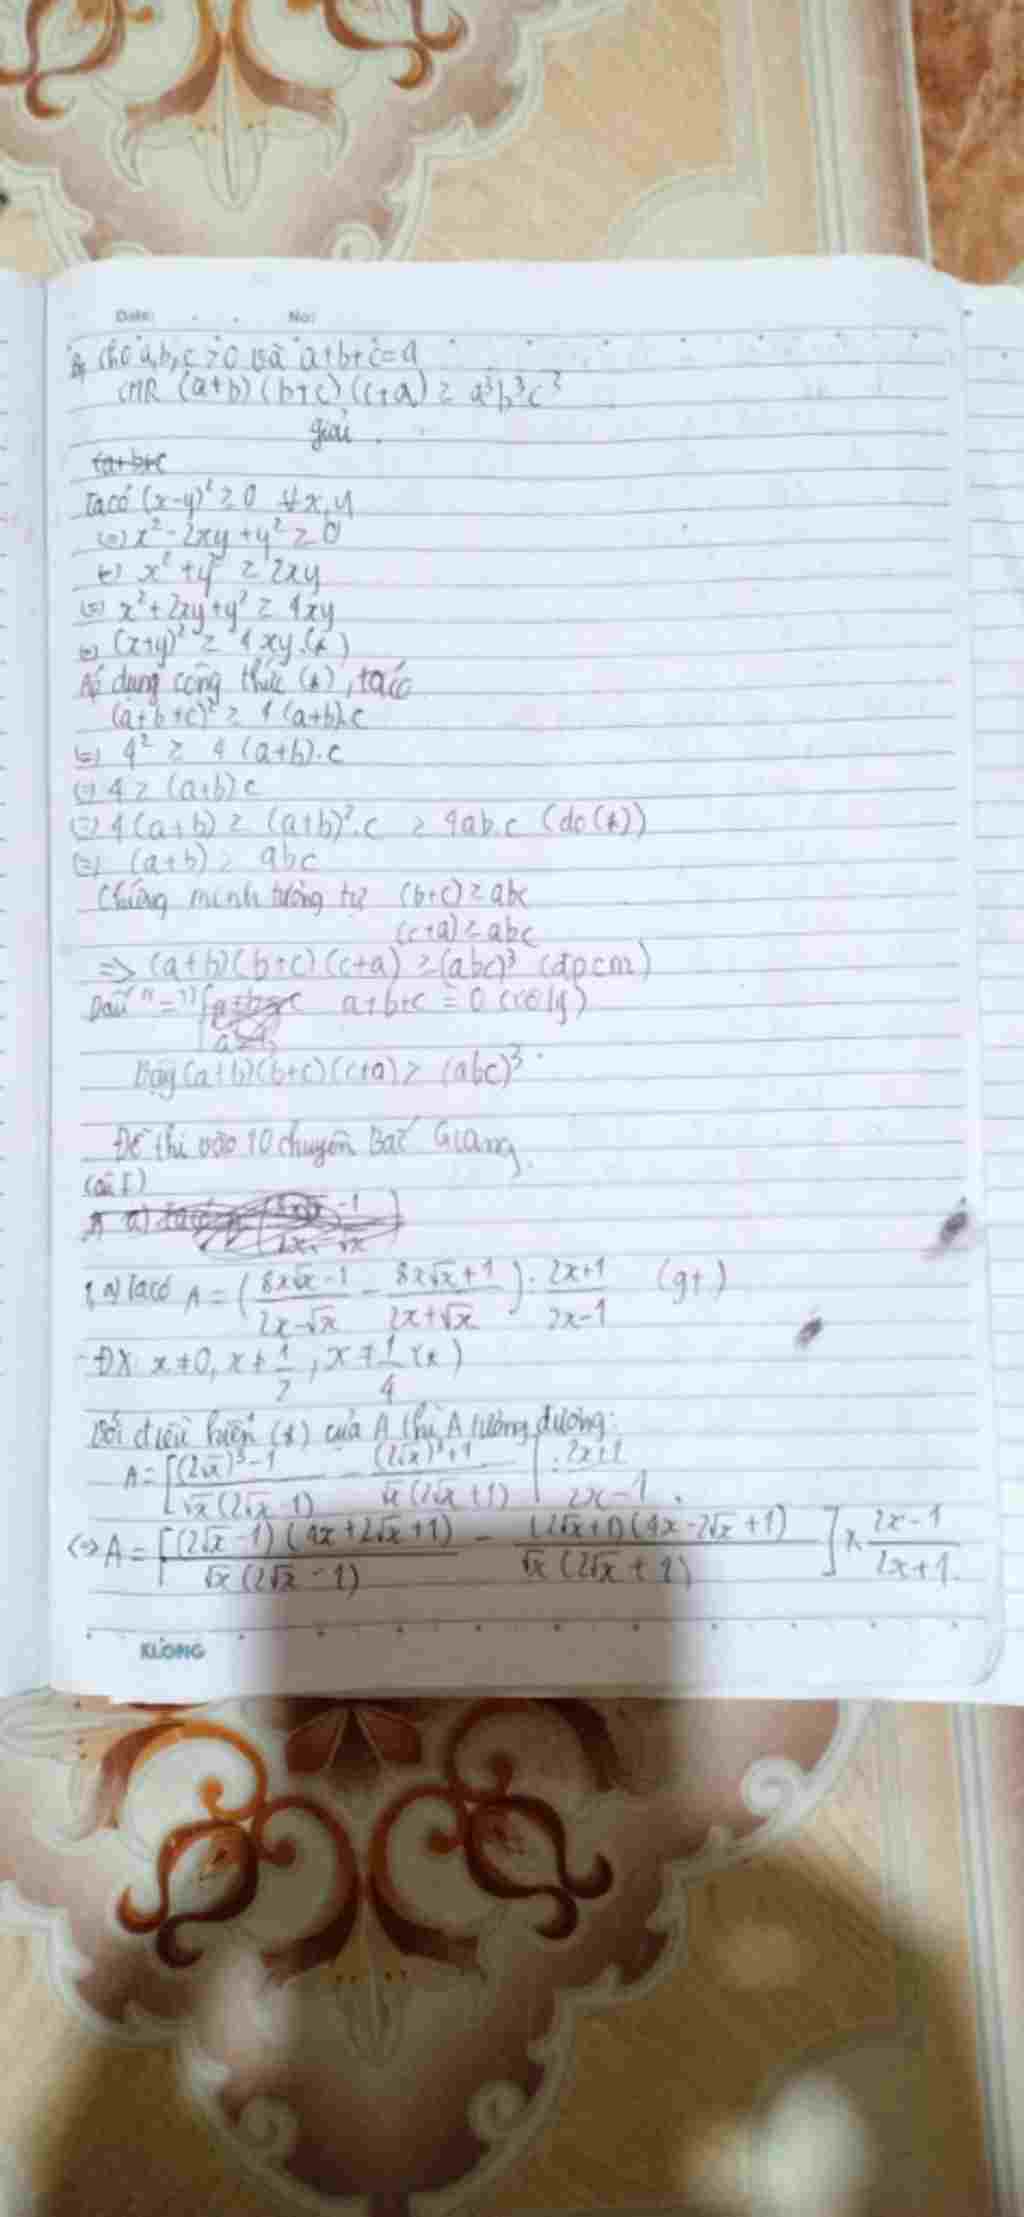 Date: No:
Cho a,b,c >0 và a+b+c=4
CMR (a+b)(b+c)(c+a) ≥ a³b³c³
giải
Ta có (x-y)² ≥ 0 ∀x,y
(=) x² - 2xy + y² ≥ 0
(=) x² + y² ≥ 2xy
(=) x² + 2xy + y² ≥ 4xy
(=) (x+y)² ≥ 4xy (*)
Áp dụng công thức (*), ta có
(a+b+c)² ≥ 4(a+b).c
(=) 4² ≥ 4(a+b).c
(=) 4 ≥ (a+b)c
(=) 4(a+b) ≥ (a+b)².c ≥ 4ab.c (do(*))
(=) (a+b) ≥ abc
Chứng minh tương tự (b+c) ≥ abc
(c+a) ≥ abc
=> (a+b)(b+c)(c+a) ≥ (abc)³ (đpcm)
Dấu "=" a+b+c = 0 (vô lý)
Vậy (a+b)(b+c)(c+a) > (abc)³
Đề thi vào 10 chuyên Bắc Giang
Câu I)
1, a) Ta có A = (8x√x-1 / 2x-√x - 8x√x+1 / 2x+√x) : 2x+1 / 2x-1 (gt)
ĐK x≠0, x≠1/2, x≠1/4 (*)
Với điều kiện (*) của A thì A tương đương:
A = [(2√x)³-1 / √x(2√x-1) - (2√x)³+1 / √x(2√x+1)] : 2x+1 / 2x-1.
<=> A = [(2√x-1)(4x+2√x+1) / √x(2√x-1) - (2√x+1)(4x-2√x+1) / √x(2√x+1)] x 2x-1 / 2x+1.
KLONG